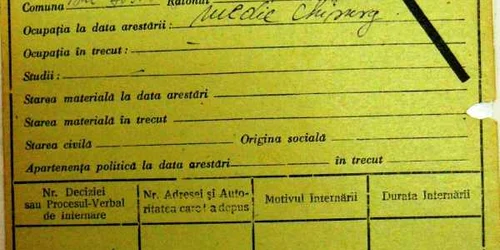 Comuna Raionul
Ocupația la data arestării: medic chirurg
Ocupația în trecut:
Studii:
Starea materială la data arestări
Starea materială în trecut
Starea civilă Origina socială
Apartenența politică la data arestări în trecut
Nr. Deciziei sau Procesul-Verbal de internare
Nr. Adresei și Autoritatea care l a depus
Motivul Internării
Durata Internării